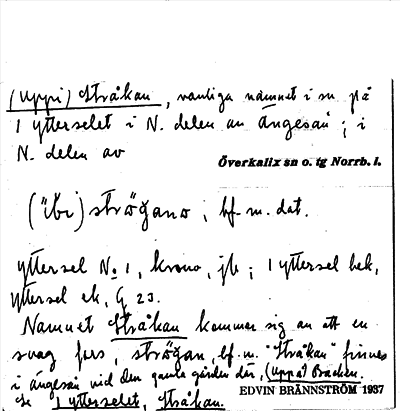 (Uppi) Stråkan, vanliga namnet i sn på
1 ytterselet i N. delen av Ängesån; i
N. delen av
Överkalix sn o. tg Norrb. l.
(ʹibi) strōgano; bf. m. dat.
yttersel No 1, krono, jb; 1 yttersel hek,
yttersel ek, G 23.
Namnet Stråkan kommer sig av att en
svag fors, strōgan, bf. m. "Stråkan" finnes
i ängesån vid den gamla gården där, (Uppå) Backen.
Se 1 ytterselet, Stråkan.
EDVIN BRÄNNSTRÖM 1937